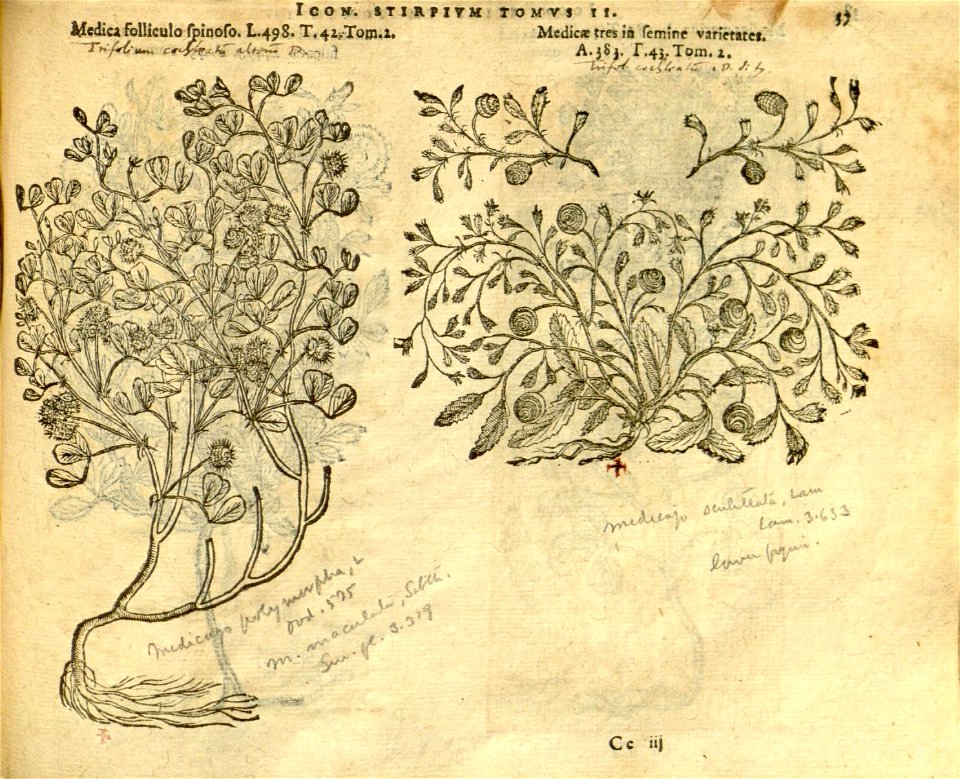 ICON. STIRPIVM TOMVS II.
37
Medica folliculo spinoso. L.498. T.42. Tom.2.
Trifolium cochleatū alterū D.
Medicæ tres in semine varietates.
A.383. T.43. Tom. 2.
Trifol cochleatū. D.
medicago scutellata, Lam
Lam. 3.633
lower figure.
Medicago polymorpha, L
Dod. 575
M. maculata, Sibth.
Sm. fl. 3.319
Cc iij